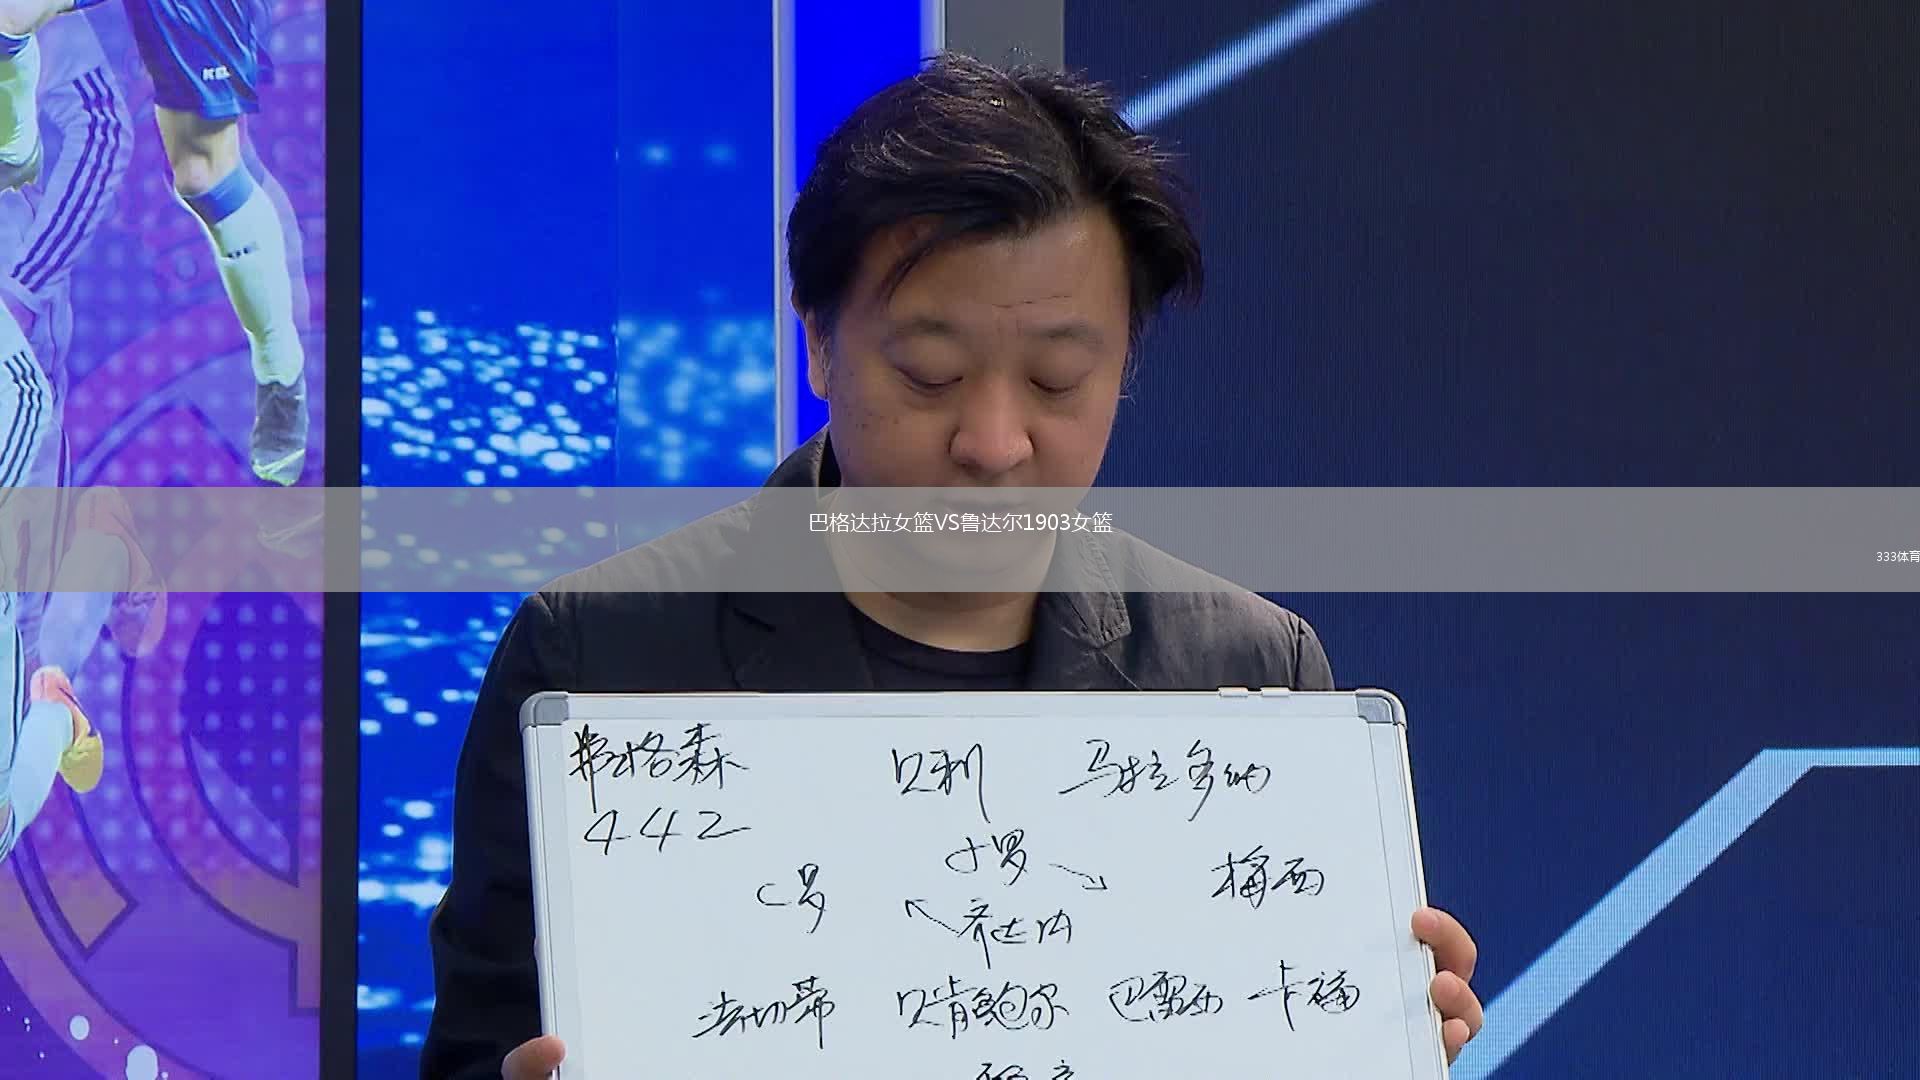 KEL
巴格达拉女篮VS鲁达尔1903女篮
333体育
弗格森 贝利 马拉多纳
442
小罗
C罗 梅西
齐达内
法切蒂 贝肯鲍尔 巴雷西 卡福